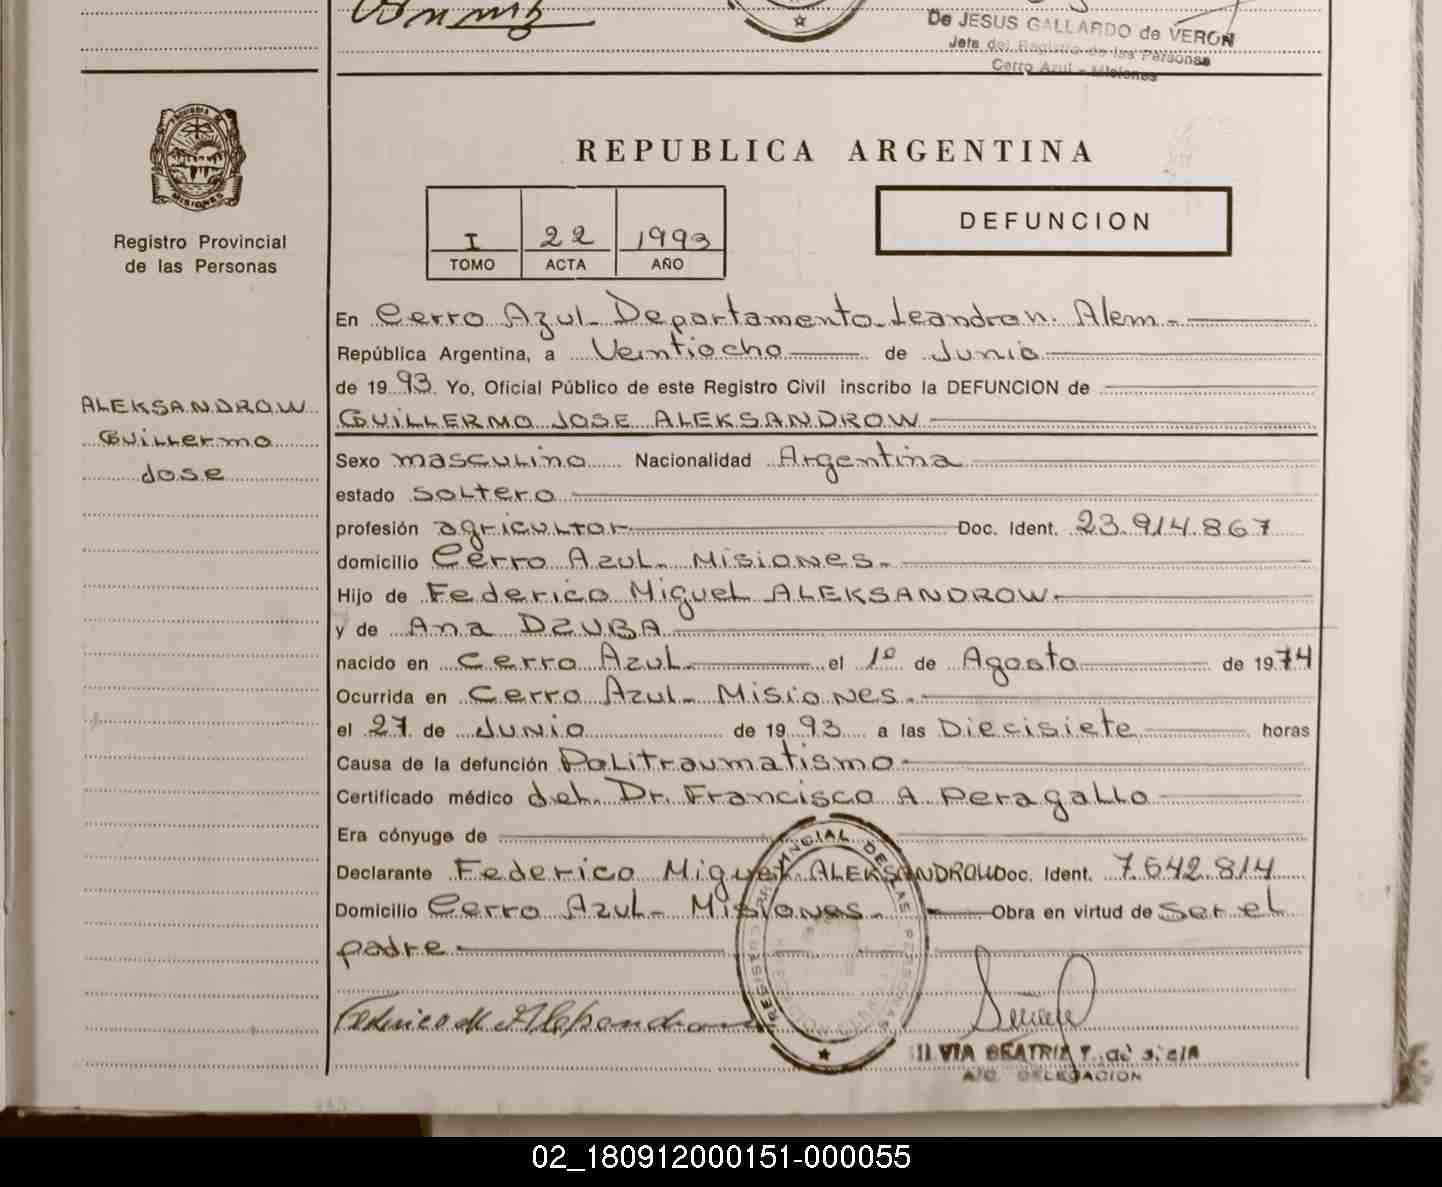 De JESUS GALLARDO de VERON
Jefa del Registro de las Personas
Cerro Azul - Misiones
MISIONES
Registro Provincial
de las Personas
REPUBLICA ARGENTINA
I 22 1993
TOMO ACTA AÑO
DEFUNCION
ALEKSANDROW
Guillermo
Jose
En Cerro Azul - Departamento Leandro N. Alem.-
República Argentina, a Veintiocho de Junio
de 1993. Yo, Oficial Público de este Registro Civil inscribo la DEFUNCION de
GUILLERMO JOSE ALEKSANDROW
Sexo masculino Nacionalidad Argentina
estado soltero
profesión agricultor Doc. Ident. 23.914.867
domicilio Cerro Azul - Misiones.-
Hijo de Federico Miguel ALEKSANDROW.
y de Ana DZUBA
nacido en Cerro Azul. el 1º de Agosto de 1974
Ocurrida en Cerro Azul - Misiones.-
el 27 de Junio de 1993 a las Diecisiete horas
Causa de la defunción Politraumatismo
Certificado médico del Dr. Francisco A Peragallo
Era cónyuge de
Declarante Federico Miguel ALEKSANDROW Doc. Ident. 7.642.814
Domicilio Cerro Azul - Misiones.- Obra en virtud de ser el
padre
REGISTRO PROVINCIAL DE LAS PERSONAS
Federico M Aleksandrow
A/C. DELEGACION
02_180912000151-000055